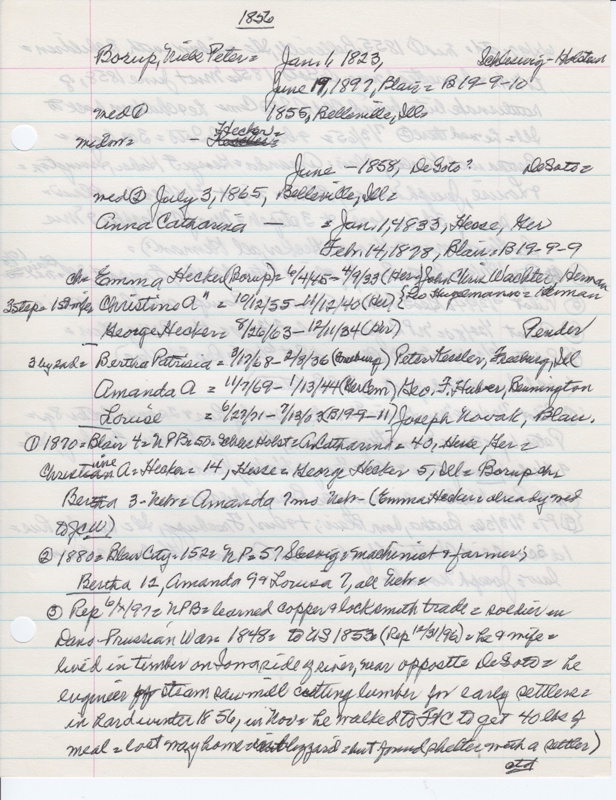 1856
Borup, Niels Peter = Jan 1, 1823, Schleswig-Holstein
June 19, 1897, Blair = B19-9-10
med ① 1855, Belleville, Ills
Hecker =
June - 1858, DeSoto? DeSoto =
med ② July 3, 1865, Belleville, Ill =
Anna Catharina — = Jan. 1, 1833, Hesse, Ger
Feb. 14, 1878, Blair = B19-9-9
ch = Emma Hecker (Borup) = 6/4/45 - 4/9/33 (Her) John Chris Wachter, Herman
3 steps = 1st mfr Christina A " = 10/12/55 - 11/12/40 (Her) { Geo Hugelmann = Herman
George Hecker = 8/26/63 - 12/11/34 Pender
3 by 2nd = Bertha Patrisia = 3/17/68 - 2/3/36 (Freeburg) Peter Kessler, Freeburg, Ill
Amanda A = 11/7/69 - 1/13/44 (Ger Cem) Geo. F. Huber, Bennington
Louise = 6/27/71 - 7/13/63 (B19-9-11) Joseph Novak, Blair.
① 1870 = Blair 4 = NPB = 50 = Schles Holst = A Catharina = 40, Hesse, Ger =
Christine A = Hecker = 14, Hesse = George Hecker 5, Ill = Borup chr
Bertha 3 - Nebr = Amanda 7 mos Nebr - (Emma Hecker = already med
to JCW)
② 1880 = Blair City = 152 = NP = 57 Slesvig = machinist & farmer;
Bertha 12, Amanda 9 & Louisa 7, all Nebr =
③ Rep 6/ /97 = NPB = learned copper & locksmith trade = soldier in
Dano-Prussian War = 1848 = to US 1853 = (Rep 12/31/96) = he & wife =
lived in timber on Iowa side of river, near opposite DeSoto = he
engineer of steam sawmill cutting lumber for early settlers =
in hard winter 1856, in Nov = he walked to FtC to get 40 lbs of
meal = lost way home in blizzard = but found shelter with a settler)